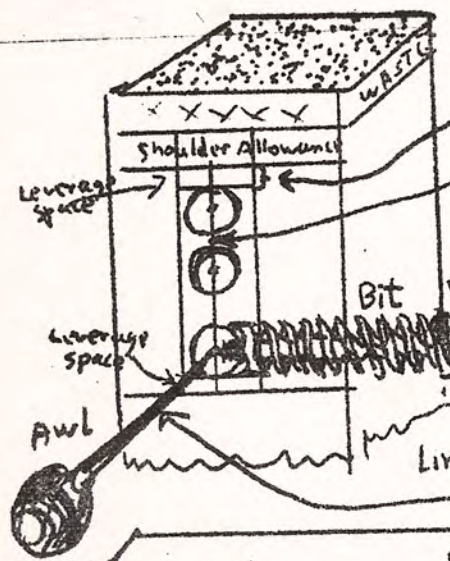 WASTE
x x x x x
Shoulder Allowance
Leverage
Space
Bit
Leverage
Space
Awl